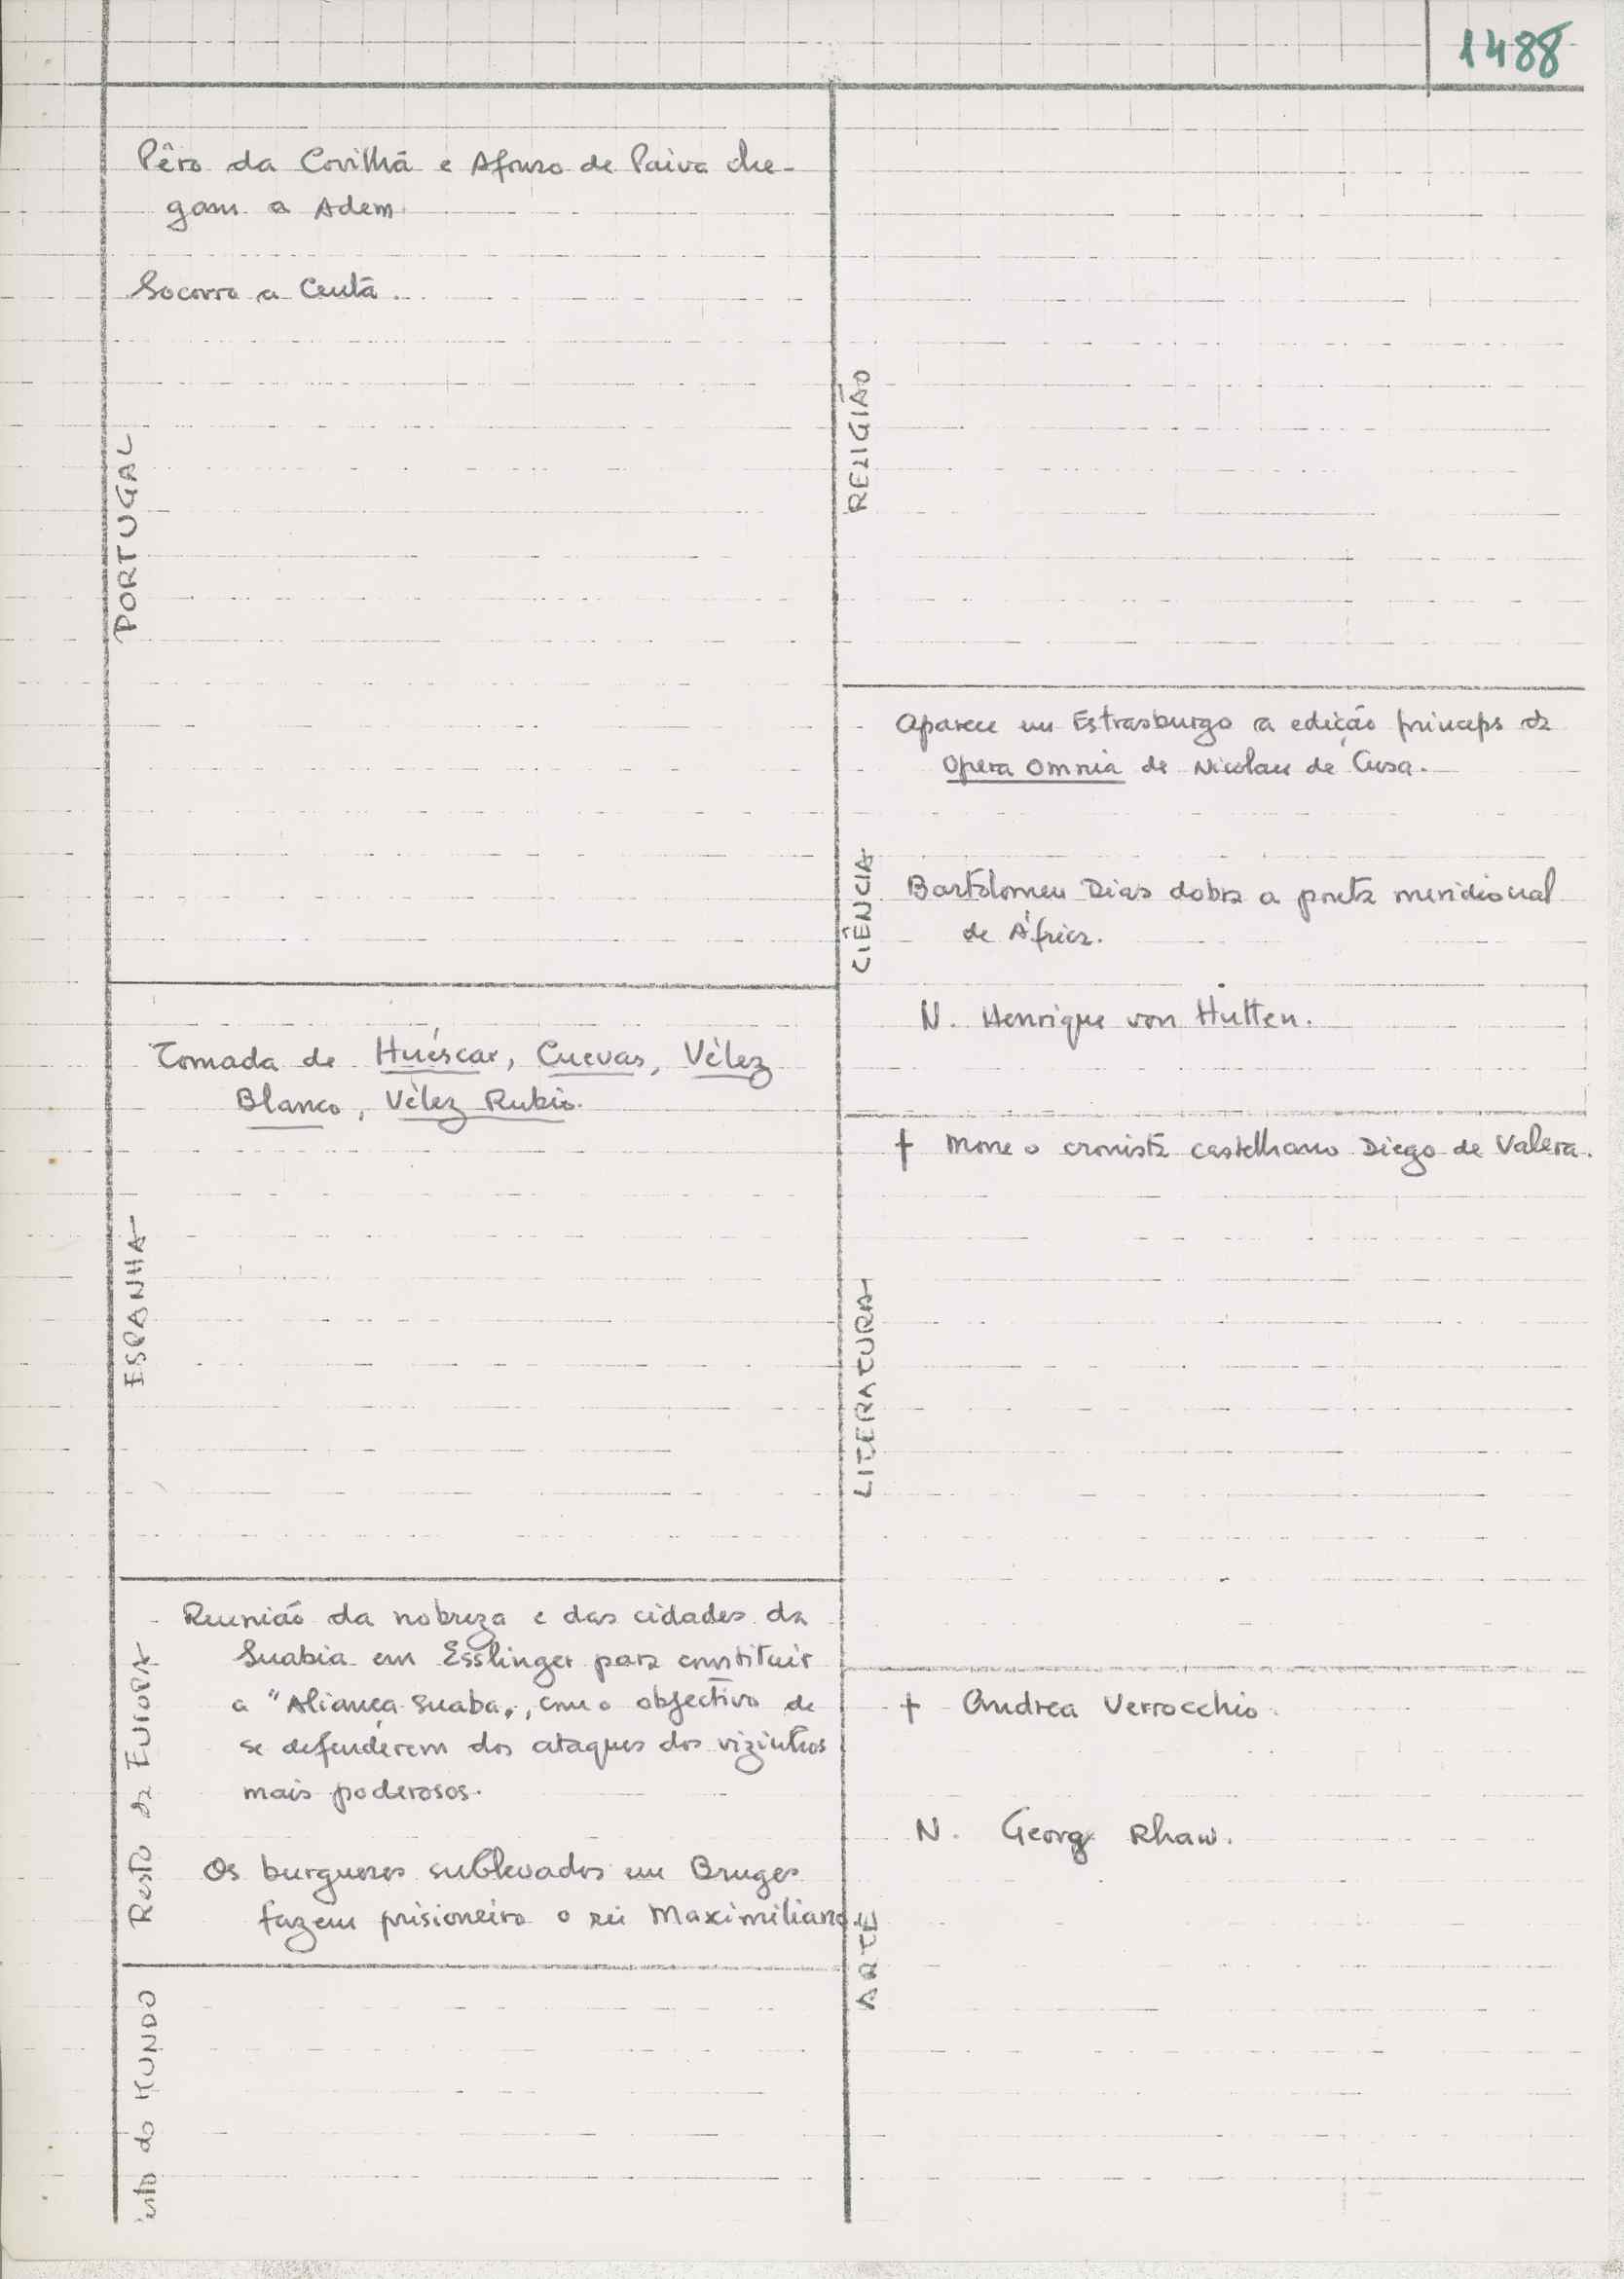 1488
PORTUGAL
Pêro da Covilhã e Afonso de Paiva che-
gam a Adem
Socorro a Ceuta.
ESPANHA
Tomada de Huéscar, Cuevas, Vélez
Blanco, Vélez Rubio.
Resto da EUROPA
Reunião da nobreza e das cidades da
Suabia em Esslinger para constituir
a "Aliança Suaba", com o objectivo de
se defenderem dos ataques dos vizinhos
mais poderosos.
Os burgueses sublevados em Bruges
fazem prisioneiro o rei Maximiliano.
esto do MUNDO
RELIGIÃO
CIÊNCIA
Aparece em Estrasburgo a edição princeps da
Opera Omnia de Nicolau de Cusa.
Bartolomeu Dias dobra a ponta meridional
de África.
N. Henrique von Hutten.
LITERATURA
† Morre o cronista castelhano Diego de Valera.
ARTE
† Andrea Verrocchio.
N. Georg Rhaw.